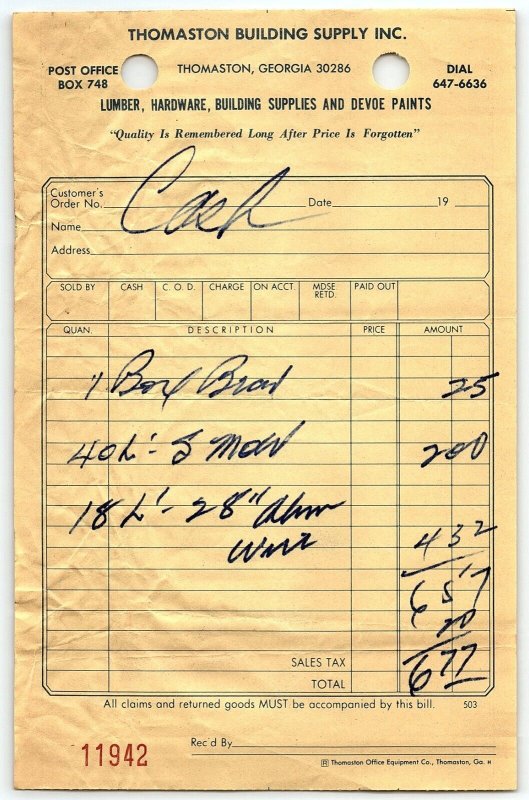 THOMASTON BUILDING SUPPLY INC.
POST OFFICE BOX 748
THOMASTON, GEORGIA 30286
DIAL 647-6636
LUMBER, HARDWARE, BUILDING SUPPLIES AND DEVOE PAINTS
"Quality Is Remembered Long After Price Is Forgotten"
Customer's Order No. Date 19
Cash
Name
Address
SOLD BY CASH C. O. D. CHARGE ON ACCT. MDSE. RETD. PAID OUT
QUAN. DESCRIPTION PRICE AMOUNT
1 Box Brad 25
40 L'- S Mold 200
18 L'- 28" Alum
Wire 432
657
20
SALES TAX
TOTAL 677
All claims and returned goods MUST be accompanied by this bill. 503
11942
Rec'd By
R Thomaston Office Equipment Co., Thomaston, Ga. H